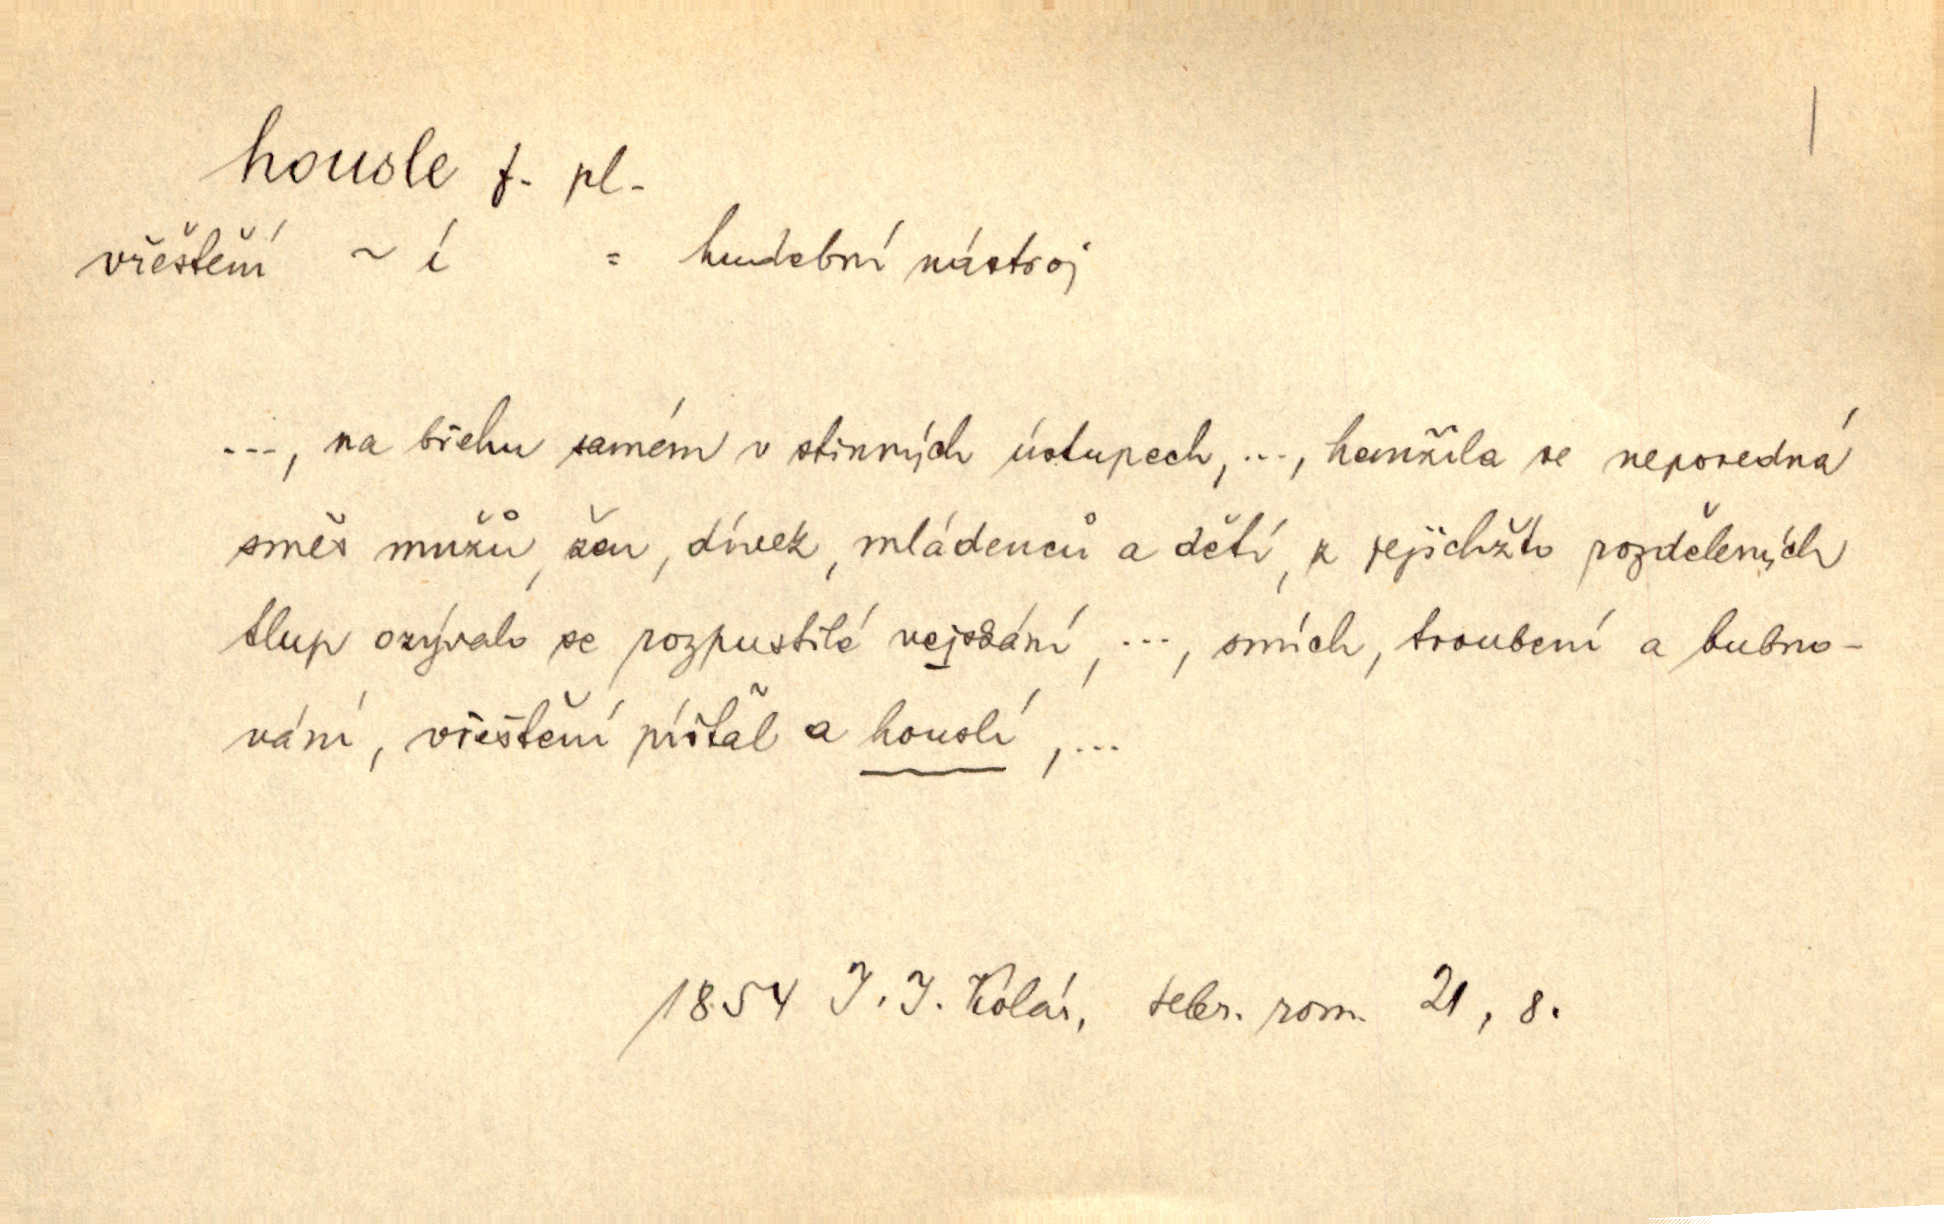 |
housle f. pl.
vřeštění ~ í = hudební nástroj
---, na břehu samém v stinných ústupech, ..., hemžila se neposedná
směs mužů, žen, dívek, mládenců a dětí, z jejichžto rozdělených
tlup ozývalo se rozpustilé vejskání, ..., smích, troubení a bubno-
vání, vřeštění píšťal a houslí, ...
1854 J. J. Kolár, sebr. rom. 21, 8.